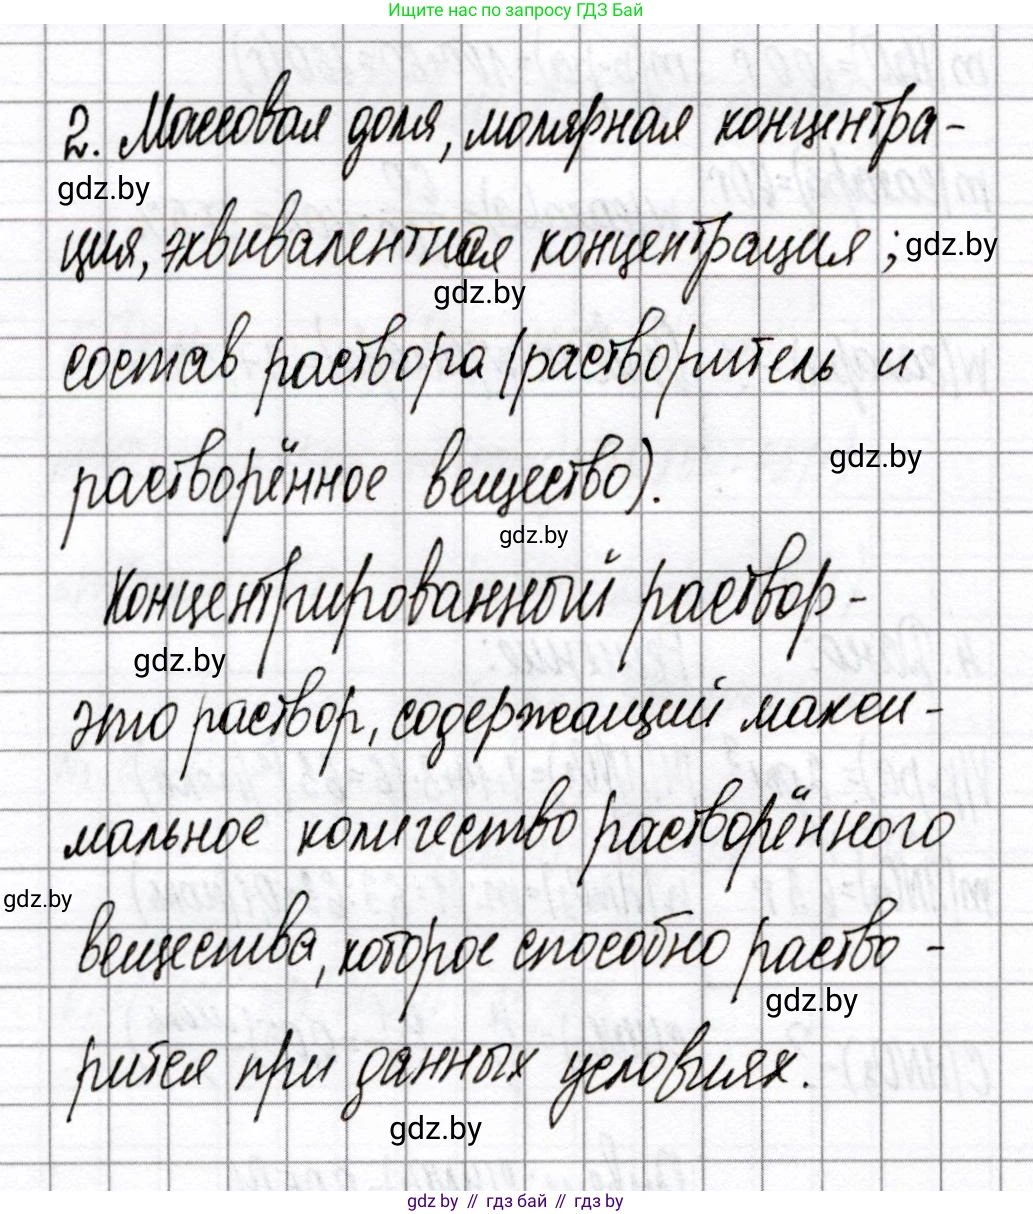 Ищите нас по запросу ГДЗ Бай
2. Массовая доля, молярная концентра-
gdz.by
ция, эквивалентная концентрация;
gdz.by
gdz.by
состав раствора (растворитель и
растворённое вещество).
gdz.by
gdz.by
Концентрированный раствор-
gdz.by
это раствор, содержащий макси-
мальное количество растворённого
gdz.by
вещества, которое способно раство-
gdz.by
рится при данных условиях.
gdz.by
gdz.by // гдз бай // гдз by